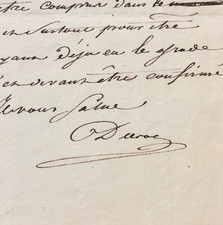 être compris dans le
et surtout pour être
ayant déjà eu le grade
et devant être confirmé
Je vous salue
Duroc